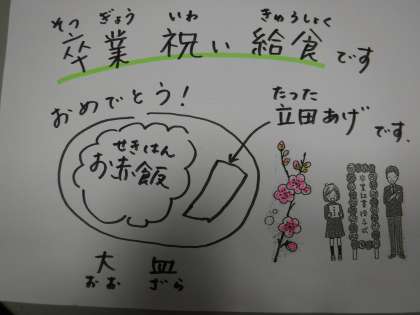 そつ ぎょう いわ きゅうしょく
卒業 祝い 給食です
おめでとう!
たつた
立田あげです。
せきはん
お赤飯
大 皿
おお ざら